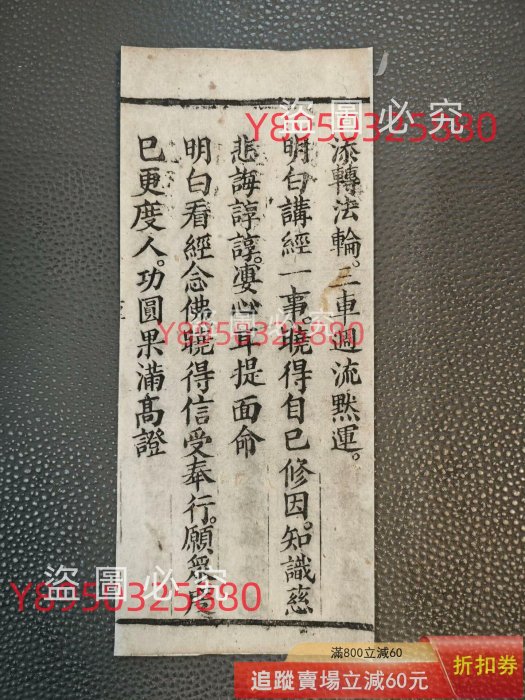 轉法輪。三車週流默運。
明白講經一事。曉得自已修因。知識慈
悲誨諄諄。婆心耳提面命
明白看經念佛曉得信受奉行。願眾
已更度人。功圓果滿高證
盜圖必究
Y8950325880
盜圖必究
Y8950325880
盜圖必究
Y8950325880
滿800立減60
追蹤賣場立減60元
折扣券